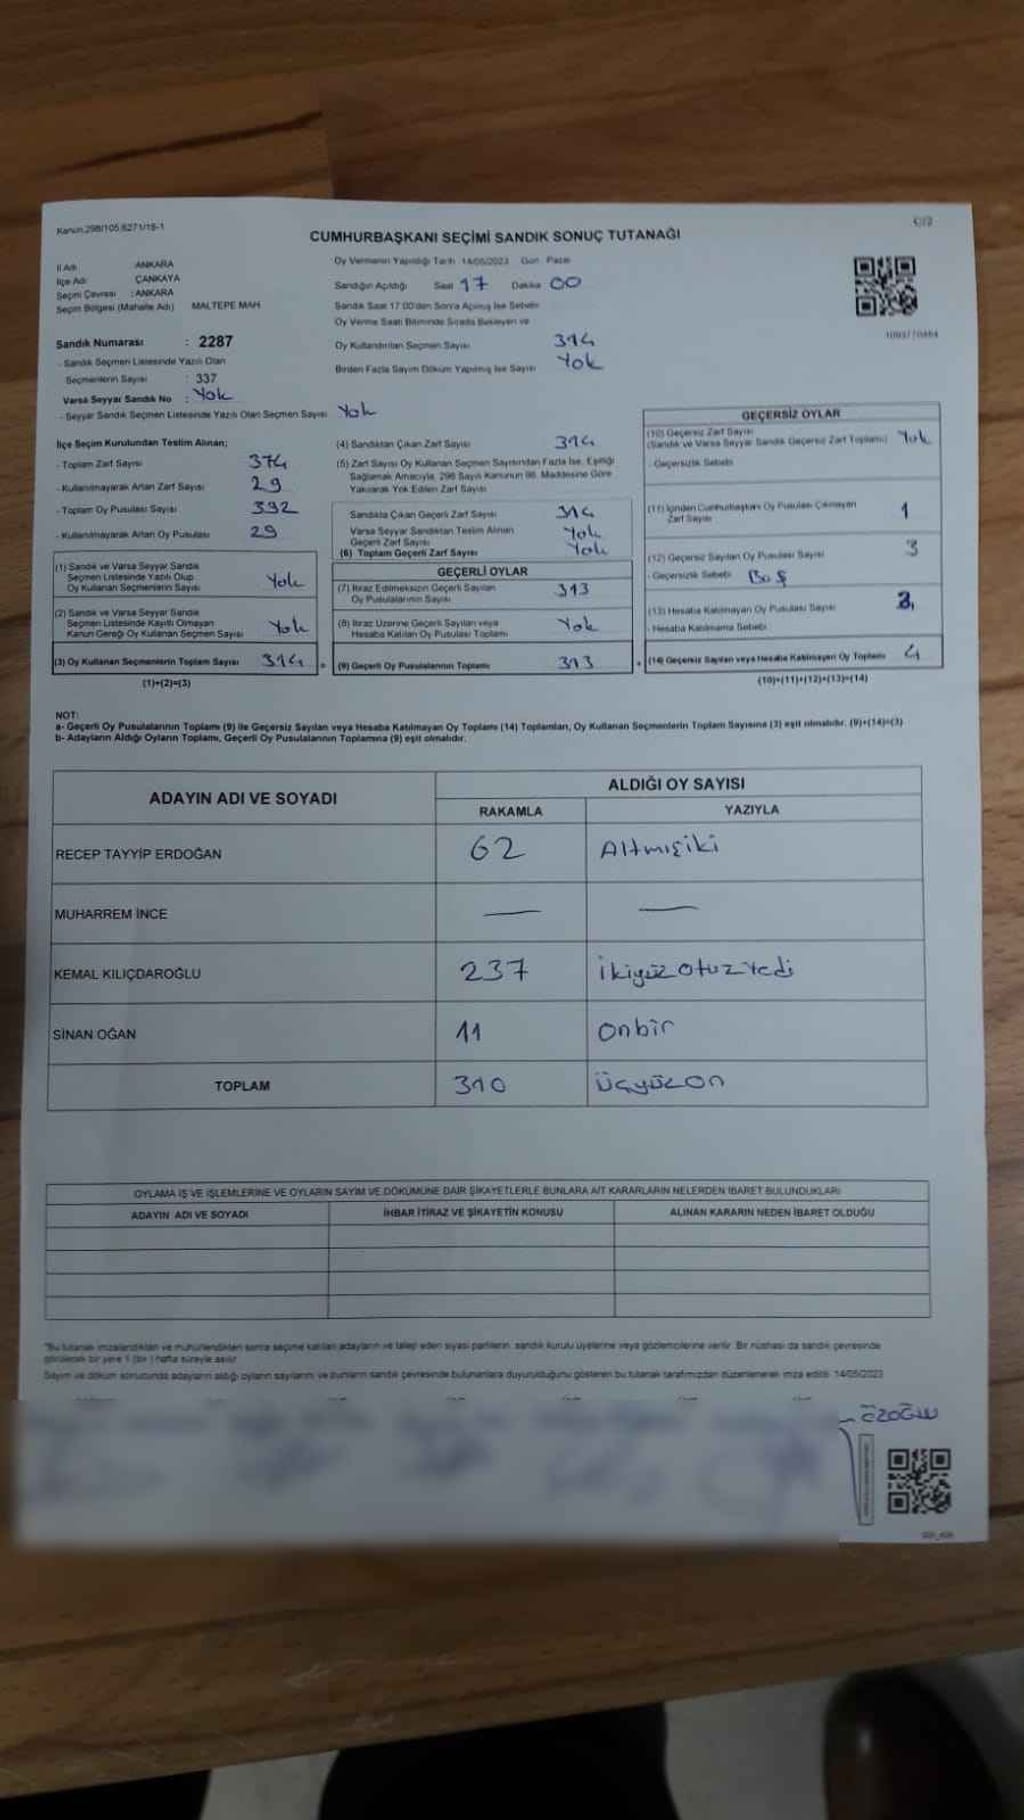 Kanun:298/105,6271/18-1
C/2
CUMHURBAŞKANI SEÇİMİ SANDIK SONUÇ TUTANAĞI
İl Adı : ANKARA
İlçe Adı : ÇANKAYA
Seçim Çevresi : ANKARA
Seçim Bölgesi (Mahalle Adı) MALTEPE MAH
Oy Vermenin Yapıldığı Tarih 14/05/2023 Gün Pazar
Sandığın Açıldığı Saat 17 Dakika 00
Sandık Saat 17 00'dan Sonra Açılmış İse Sebebi
Oy Verme Saati Bitiminde Sırada Bekleyen ve
Oy Kullandırılan Seçmen Sayısı 314
Birden Fazla Sayım Döküm Yapılmış İse Sayısı Yok
Sandık Numarası : 2287
- Sandık Seçmen Listesinde Yazılı Olan
Seçmenlerin Sayısı : 337
Varsa Seyyar Sandık No : Yok
- Seyyar Sandık Seçmen Listesinde Yazılı Olan Seçmen Sayısı Yok
İlçe Seçim Kurulundan Teslim Alınan;
- Toplam Zarf Sayısı 374
- Kullanılmayarak Artan Zarf Sayısı 29
- Toplam Oy Pusulası Sayısı 392
- Kullanılmayarak Artan Oy Pusulası 29
(1) Sandık ve Varsa Seyyar Sandık
Seçmen Listesinde Yazılı Olup
Oy Kullanan Seçmenlerin Sayısı Yok
(2) Sandık ve Varsa Seyyar Sandık
Seçmen Listesinde Kayıtlı Olmayan
Kanun Gereği Oy Kullanan Seçmen Sayısı Yok
(3) Oy Kullanan Seçmenlerin Toplam Sayısı 314
(1)+(2)=(3)
(4) Sandıktan Çıkan Zarf Sayısı 314
(5) Zarf Sayısı Oy Kullanan Seçmen Sayısından Fazla İse, Eşitliği
Sağlamak Amacıyla, 298 Sayılı Kanunun 98. Maddesine Göre
Yakılarak Yok Edilen Zarf Sayısı
Sandıkta Çıkan Geçerli Zarf Sayısı 314
Varsa Seyyar Sandıktan Teslim Alınan
Geçerli Zarf Sayısı Yok
(6) Toplam Geçerli Zarf Sayısı Yok
GEÇERLİ OYLAR
(7) İtiraz Edilmeksizin Geçerli Sayılan
Oy Pusulalarının Sayısı 313
(8) İtiraz Üzerine Geçerli Sayılan veya
Hesaba Katılan Oy Pusulası Toplamı Yok
(9) Geçerli Oy Pusulalarının Toplamı 313
GEÇERSİZ OYLAR
(10) Geçersiz Zarf Sayısı
(Sandık ve Varsa Seyyar Sandık Geçersiz Zarf Toplamı) Yok
- Geçersizlik Sebebi
(11) İçinden Cumhurbaşkanı Oy Pusulası Çıkmayan
Zarf Sayısı 1
(12) Geçersiz Sayılan Oy Pusulası Sayısı 3
- Geçersizlik Sebebi Boş
(13) Hesaba Katılmayan Oy Pusulası Sayısı
- Hesaba Katılmama Sebebi
(14) Geçersiz Sayılan veya Hesaba Katılmayan Oy Toplamı 4
(10)+(11)+(12)+(13)=(14)
NOT:
a- Geçerli Oy Pusulalarının Toplamı (9) ile Geçersiz Sayılan veya Hesaba Katılmayan Oy Toplamı (14) Toplamları, Oy Kullanan Seçmenlerin Toplam Sayısına (3) eşit olmalıdır. (9)+(14)=(3)
b- Adayların Aldığı Oyların Toplamı, Geçerli Oy Pusulalarının Toplamına (9) eşit olmalıdır.
ADAYIN ADI VE SOYADI
ALDIĞI OY SAYISI
RAKAMLA YAZIYLA
RECEP TAYYİP ERDOĞAN 62 Altmışiki
MUHARREM İNCE — —
KEMAL KILIÇDAROĞLU 237 İkiyüzotuzYedi
SİNAN OĞAN 11 onbir
TOPLAM 310 Üçyüzon
OYLAMA İŞ VE İŞLEMLERİNE VE OYLARIN SAYIM VE DÖKÜMÜNE DAİR ŞİKAYETLERLE BUNLARA AİT KARARLARIN NELERDEN İBARET BULUNDUKLARI
ADAYIN ADI VE SOYADI İHBAR İTİRAZ VE ŞİKAYETİN KONUSU ALINAN KARARIN NEDEN İBARET OLDUĞU
"Bu tutanak imzalandıktan ve mühürlendikten sonra seçime katılan adayların ve talep eden siyasi partilerin, sandık kurulu üyelerine veya gözlemcilerine verilir. Bir nüshası da sandık çevresinde
görülecek bir yere 1 (bir) hafta süreyle asılır
Sayım ve döküm sonucunda adayların aldığı oyların sayılarını ve bunların sandık çevresinde bulunanlara duyurulduğunu gösteren bu tutanak tarafımızdan düzenlenerek imza edildi. 14/05/2023
ÖZOĞLU